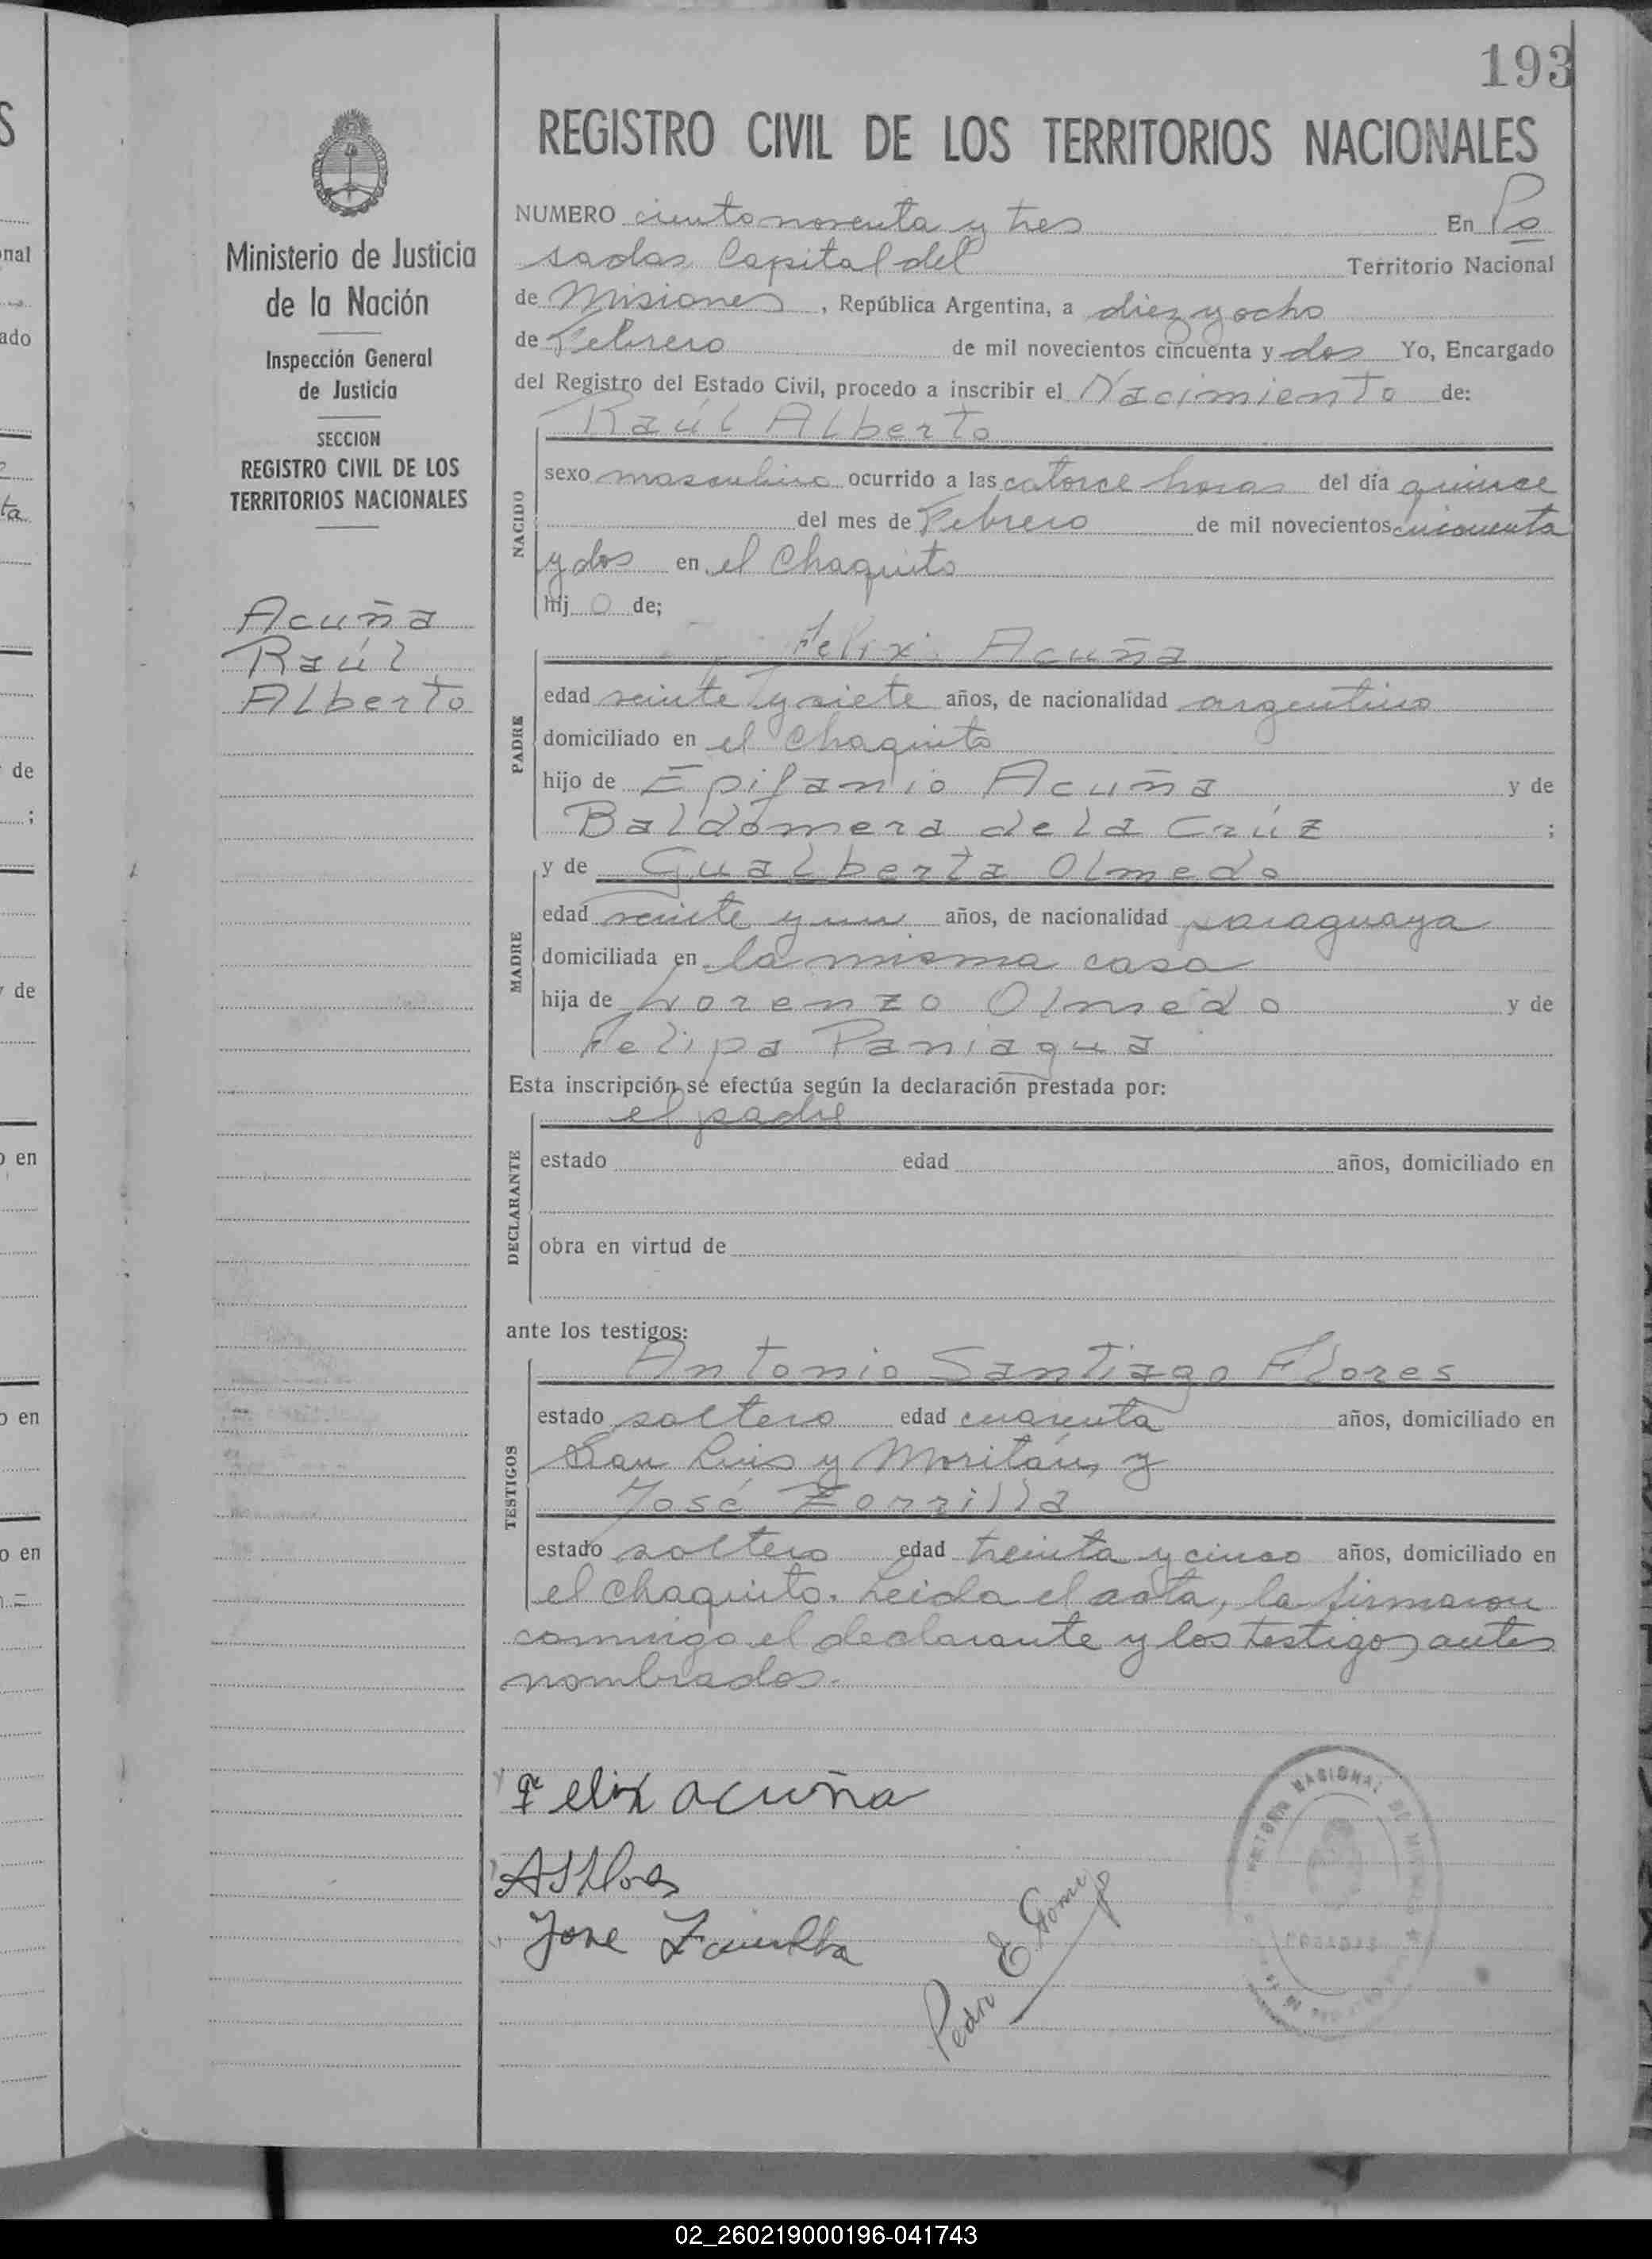 193
REGISTRO CIVIL DE LOS TERRITORIOS NACIONALES
Ministerio de Justicia
de la Nación
Inspección General
de Justicia
SECCION
REGISTRO CIVIL DE LOS
TERRITORIOS NACIONALES
Acuña
Raúl
Alberto
NUMERO ciento noventa y tres En Po
sadas Capital del Territorio Nacional
de Misiones, República Argentina, a diez y ocho
de Febrero de mil novecientos cincuenta y dos Yo, Encargado
del Registro del Estado Civil, procedo a inscribir el Nacimiento de:
Raúl Alberto
NACIDO
sexo masculino ocurrido a las catorce horas del día quince
del mes de Febrero de mil novecientos cincuenta
y dos en el Chaquito
hij o de;
Felix Acuña
PADRE
edad veinte y siete años, de nacionalidad argentino
domiciliado en el Chaquito
hijo de Epifanio Acuña y de
Baldomera de la Crúz ;
y de Gualberta Olmedo
MADRE
edad veinte y un años, de nacionalidad paraguaya
domiciliada en la misma casa
hija de Lorenzo Olmedo y de
Felipa Paniagua
Esta inscripción se efectúa según la declaración prestada por:
el padre
DECLARANTE
estado edad años, domiciliado en
obra en virtud de
ante los testigos:
Antonio Santiago Flores
TESTIGOS
estado soltero edad cuarenta años, domiciliado en
San Luis y Moritán, y
José Zorrilla
estado soltero edad treinta y cinco años, domiciliado en
el Chaquito. Leida el acta, la firmaron
conmigo el declarante y los testigos antes
nombrados.
Felix acuña
ASFlores
Jose Zorrilla
Pedro E. Gomez
02_260219000196-041743